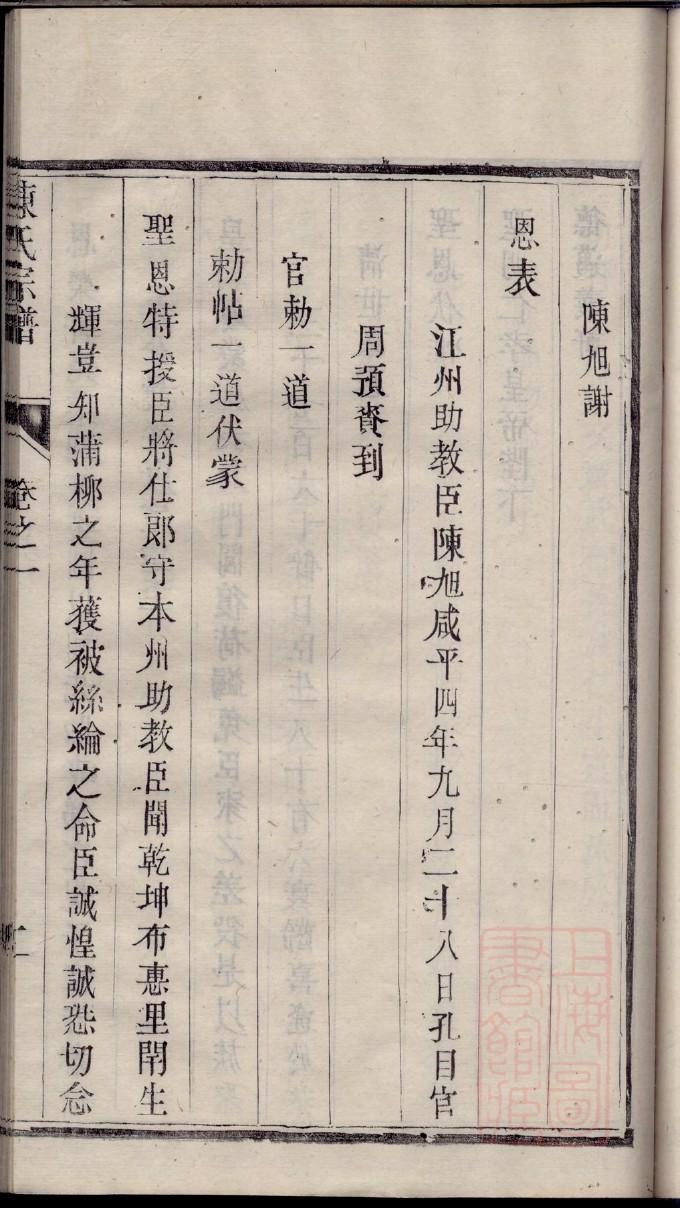 陳旭謝
恩表
江州助教臣陳旭咸平四年九月二十八日孔目官
周預賫到
官勅一道
勅帖一道伏蒙
聖恩特授臣將仕郎守本州助教臣聞乾坤布惠里閈生
輝豈知蒲柳之年獲被絲綸之命臣誠惶誠恐切念
陳氏宗譜
卷之一
上海圖書館藏